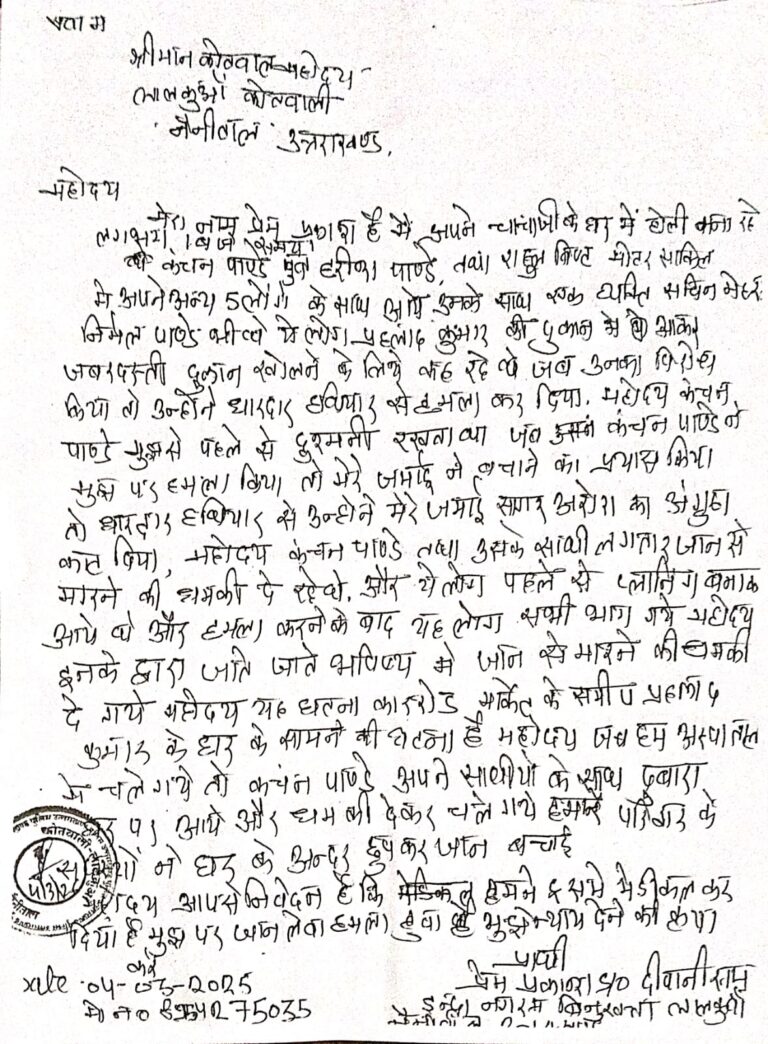 सेवा में
श्रीमान कोतवाल महोदय
लालकुआँ कोतवाली
नैनीताल उत्तराखण्ड.
महोदय
मेरा नाम प्रेम प्रकाश है मैं अपने चाचाजी के घर में होली मना रहे
लगभग 1 बजे समय
थे कंचन पाण्डे पुत्र हरीश पाण्डे, तथा राहुल बिष्ट मोटर साकिल
मे अपने अन्य 5 लोगो के साथ आये उसके साथ एक व्यक्ति सचिन मेहर
निर्मल पाण्डे भी थे ये लोग प्रहलाद कुमार की दुकान मे आकर
जबरदस्ती दुकान खोलने के लिये कह रहे थे जब उनका विरोध
किया तो उन्होने धारदार हथियार से हमला कर दिया. महोदय कंचन
पाण्डे मुझसे पहले से दुश्मनी रखता था जब कंचन पाण्डे ने
मुझ पर हमला किया तो मेरे जमाई ने बचाने का प्रयास किया
तो धारदार हथियार से उन्होने मेरे जमाई सागर अरोरा का अंगुठा
काट दिया, महोदय कंचन पाण्डे तथा उसके साथी लगातार जान से
मारने की धमकी दे रहे थे. और ये लोग पहले से प्लानिंग बनाक
आये थे और हमला करने के बाद यह लोग सभी भाग गये महोदय
इनके द्वारा जाते जाते भविष्य मे जान से मारने की धमकी
दे गये महोदय यह घटना कार रोड मार्केट के समीप प्रहलाद
कुमार के घर के सामने की घटना है महोदय जब हम अस्पताल
मे चले गये तो कंचन पाण्डे अपने साथीयो के साथ दुबारा
पर आये और धमकी देकर चले गये हमारे परिवार के
ने घर के अन्दर छुपकर जान बचाई
आपसे निवेदन है कि हमने इसमे मेडीकल कर
दिया है मुझ पर जान लेवा हमला हुवा है मुझे न्याय देने की कृपा
करें
प्रार्थी
प्रेम प्रकाश S/o दीवानी राम
इन्द्रा नगर बिन्दुखत्ता लालकुआँ
04-03-2025
मो न०
कोतवाली